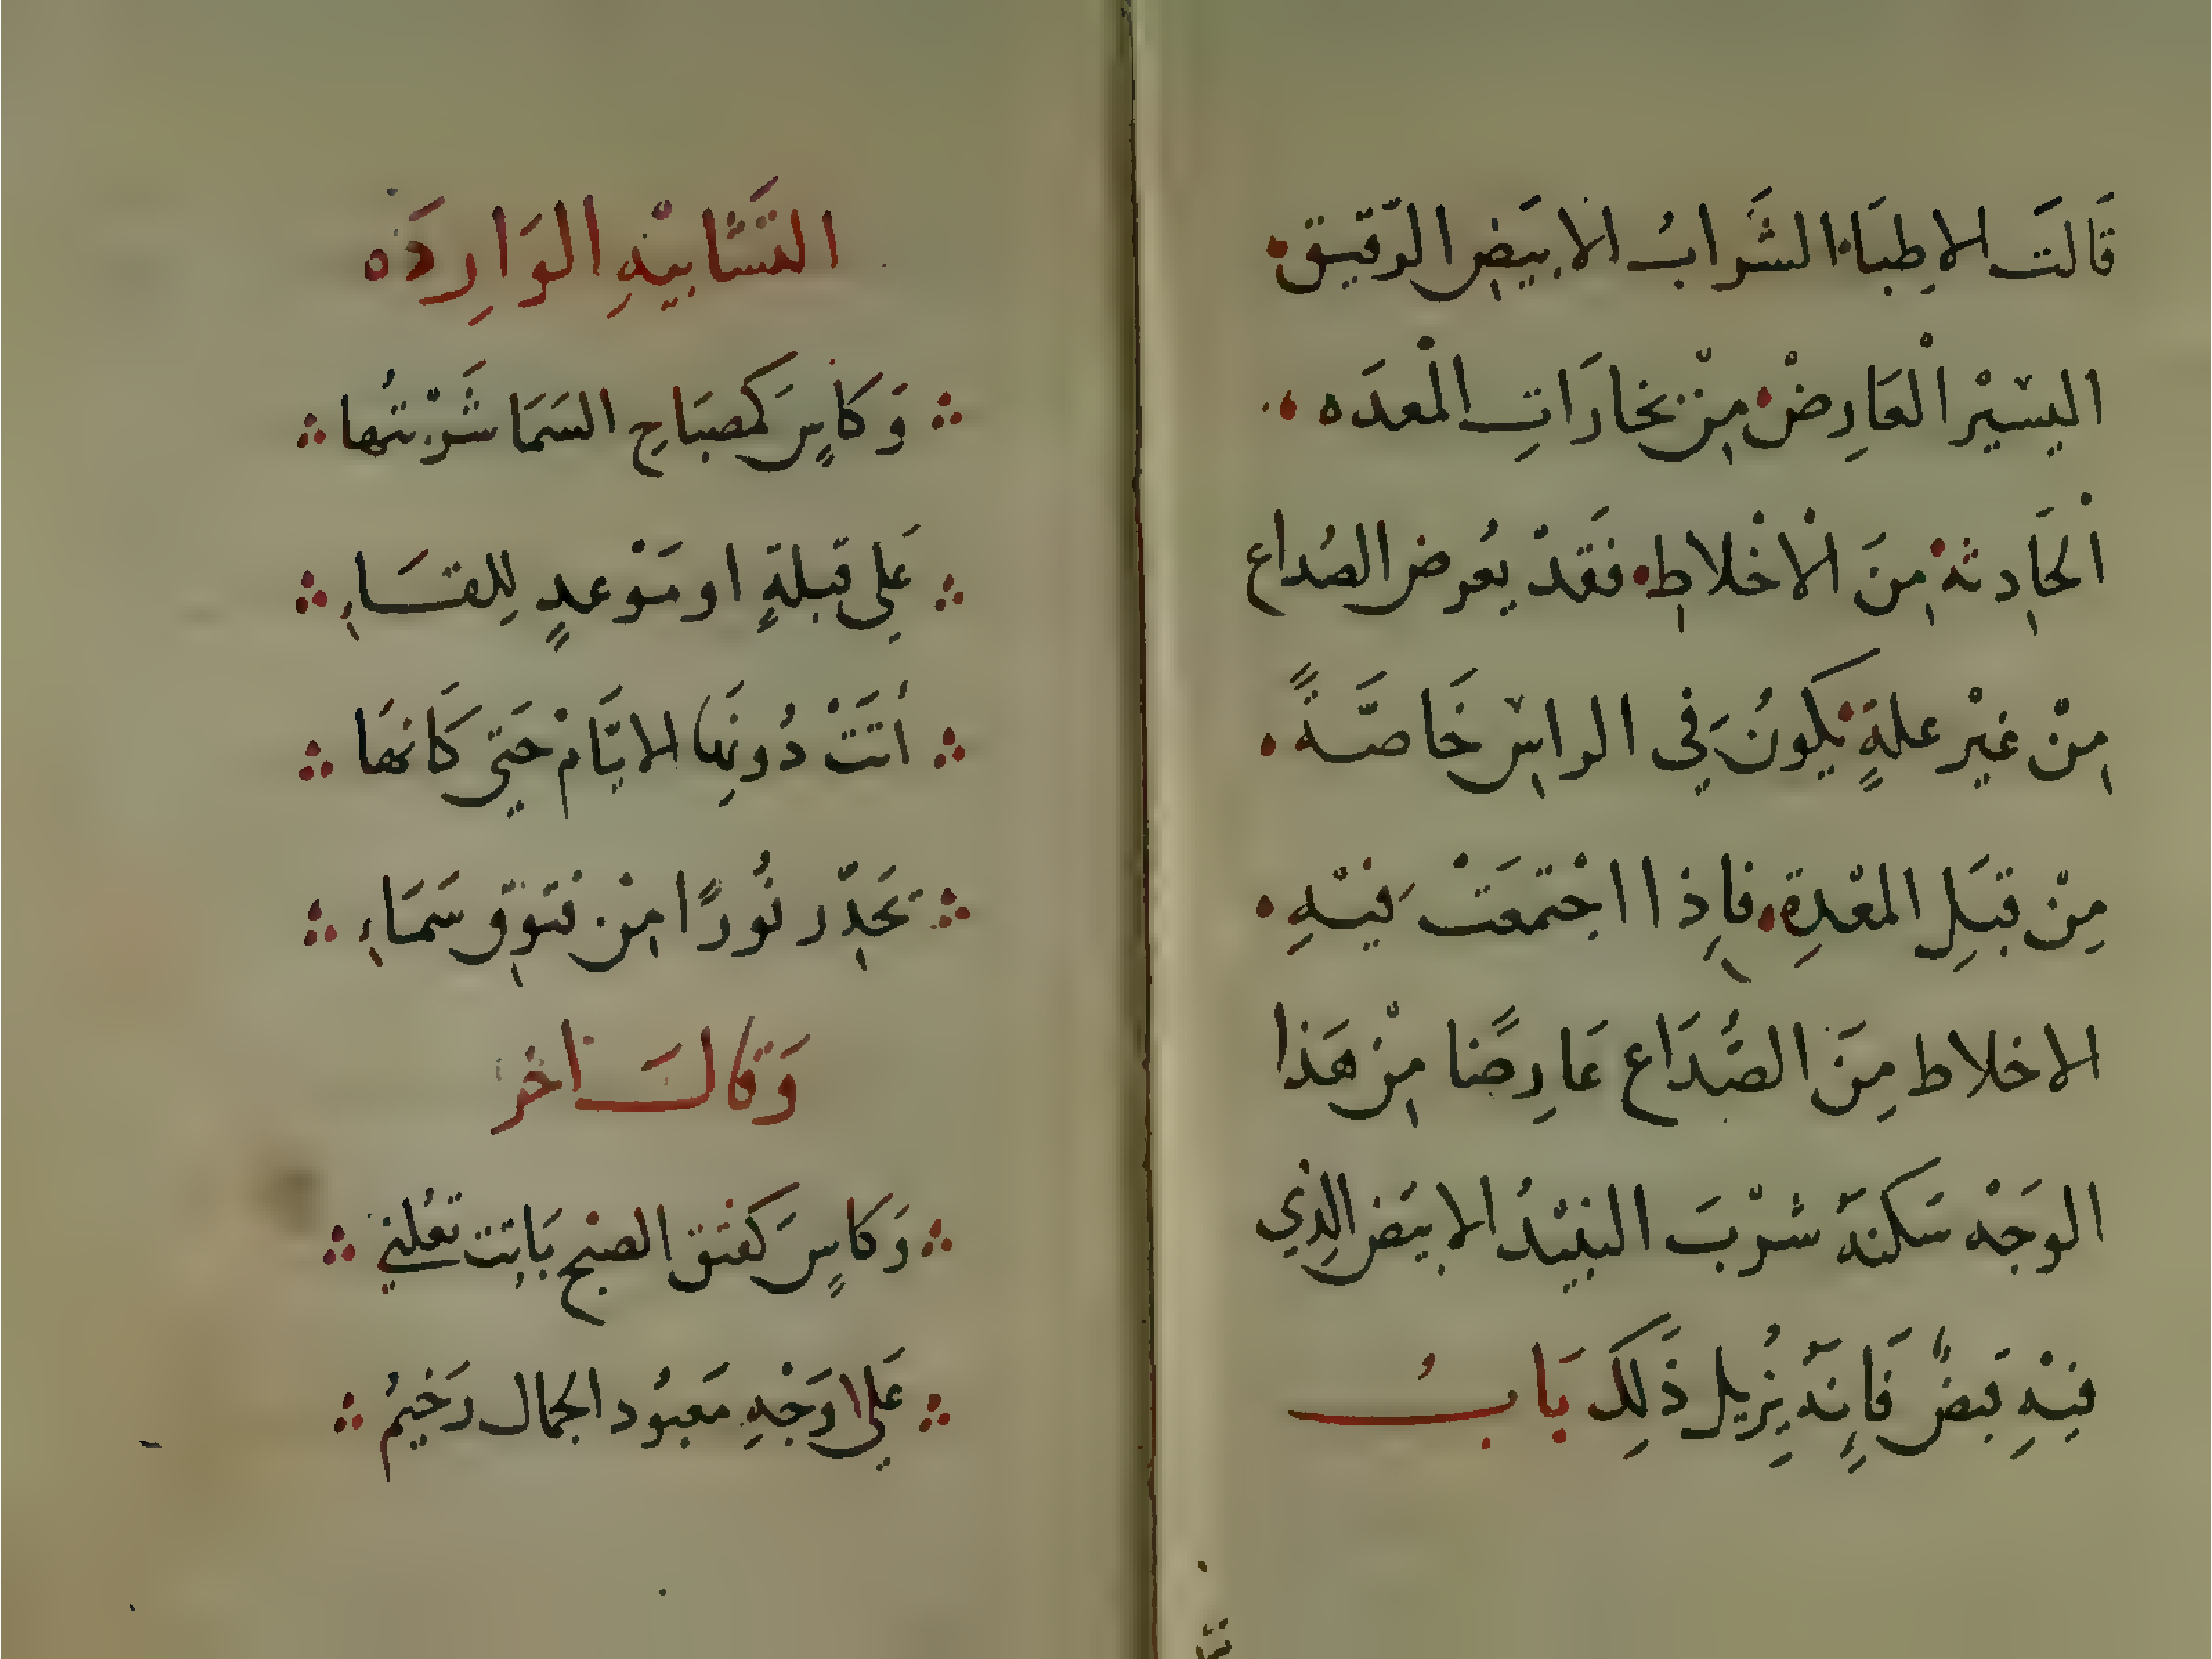 قَالَتَ الاطِبَاء الشَّرابُ الابيَضِ الرّقيق
اليسْيْر الْعَارِضْ مِنْ بخارَاتِ الْمعدَه
الْحَادِثة مِنَ الْاخْلاطِ فَقَدْ يعُرض الصُداع
مِنْ غيْر علةٍ يكونُ في الراسِ خَاصَّةً
مِنْ قبَلِ المعْدةِ فاِذا اجْتمعَتْ فيْهِ
الاخلاط مِنَ الصُّدَاع عَارِضًا مِنْ هَذا
الوَجْه سَكنهَ شرْبَ النبيْدُ الابيَض الذِي
فيْهِ قبَضٌ فَاِنهَ يُزِيل ذَلِكَ بَابُ
التَشَابيْهِ الوَارِدَه
وَكَاسٍ كَمصبَاحِ السَمَا شَرْبتُها
عَلي قبلةٍ او مَوْعدٍ للِقَاءِ
أتَتْ دُونِهَا الايَّام حَتي كَانهَا
تحَدِّر نُورًا مِنْ فتوقِ سَمَاءِ
وَقَالَ اخر
وَكاسٍ كَفتق الصبْح بَاتِت تعُلني
عَلي وَجْهِ مَعبوُد الجمال رَخيمُ